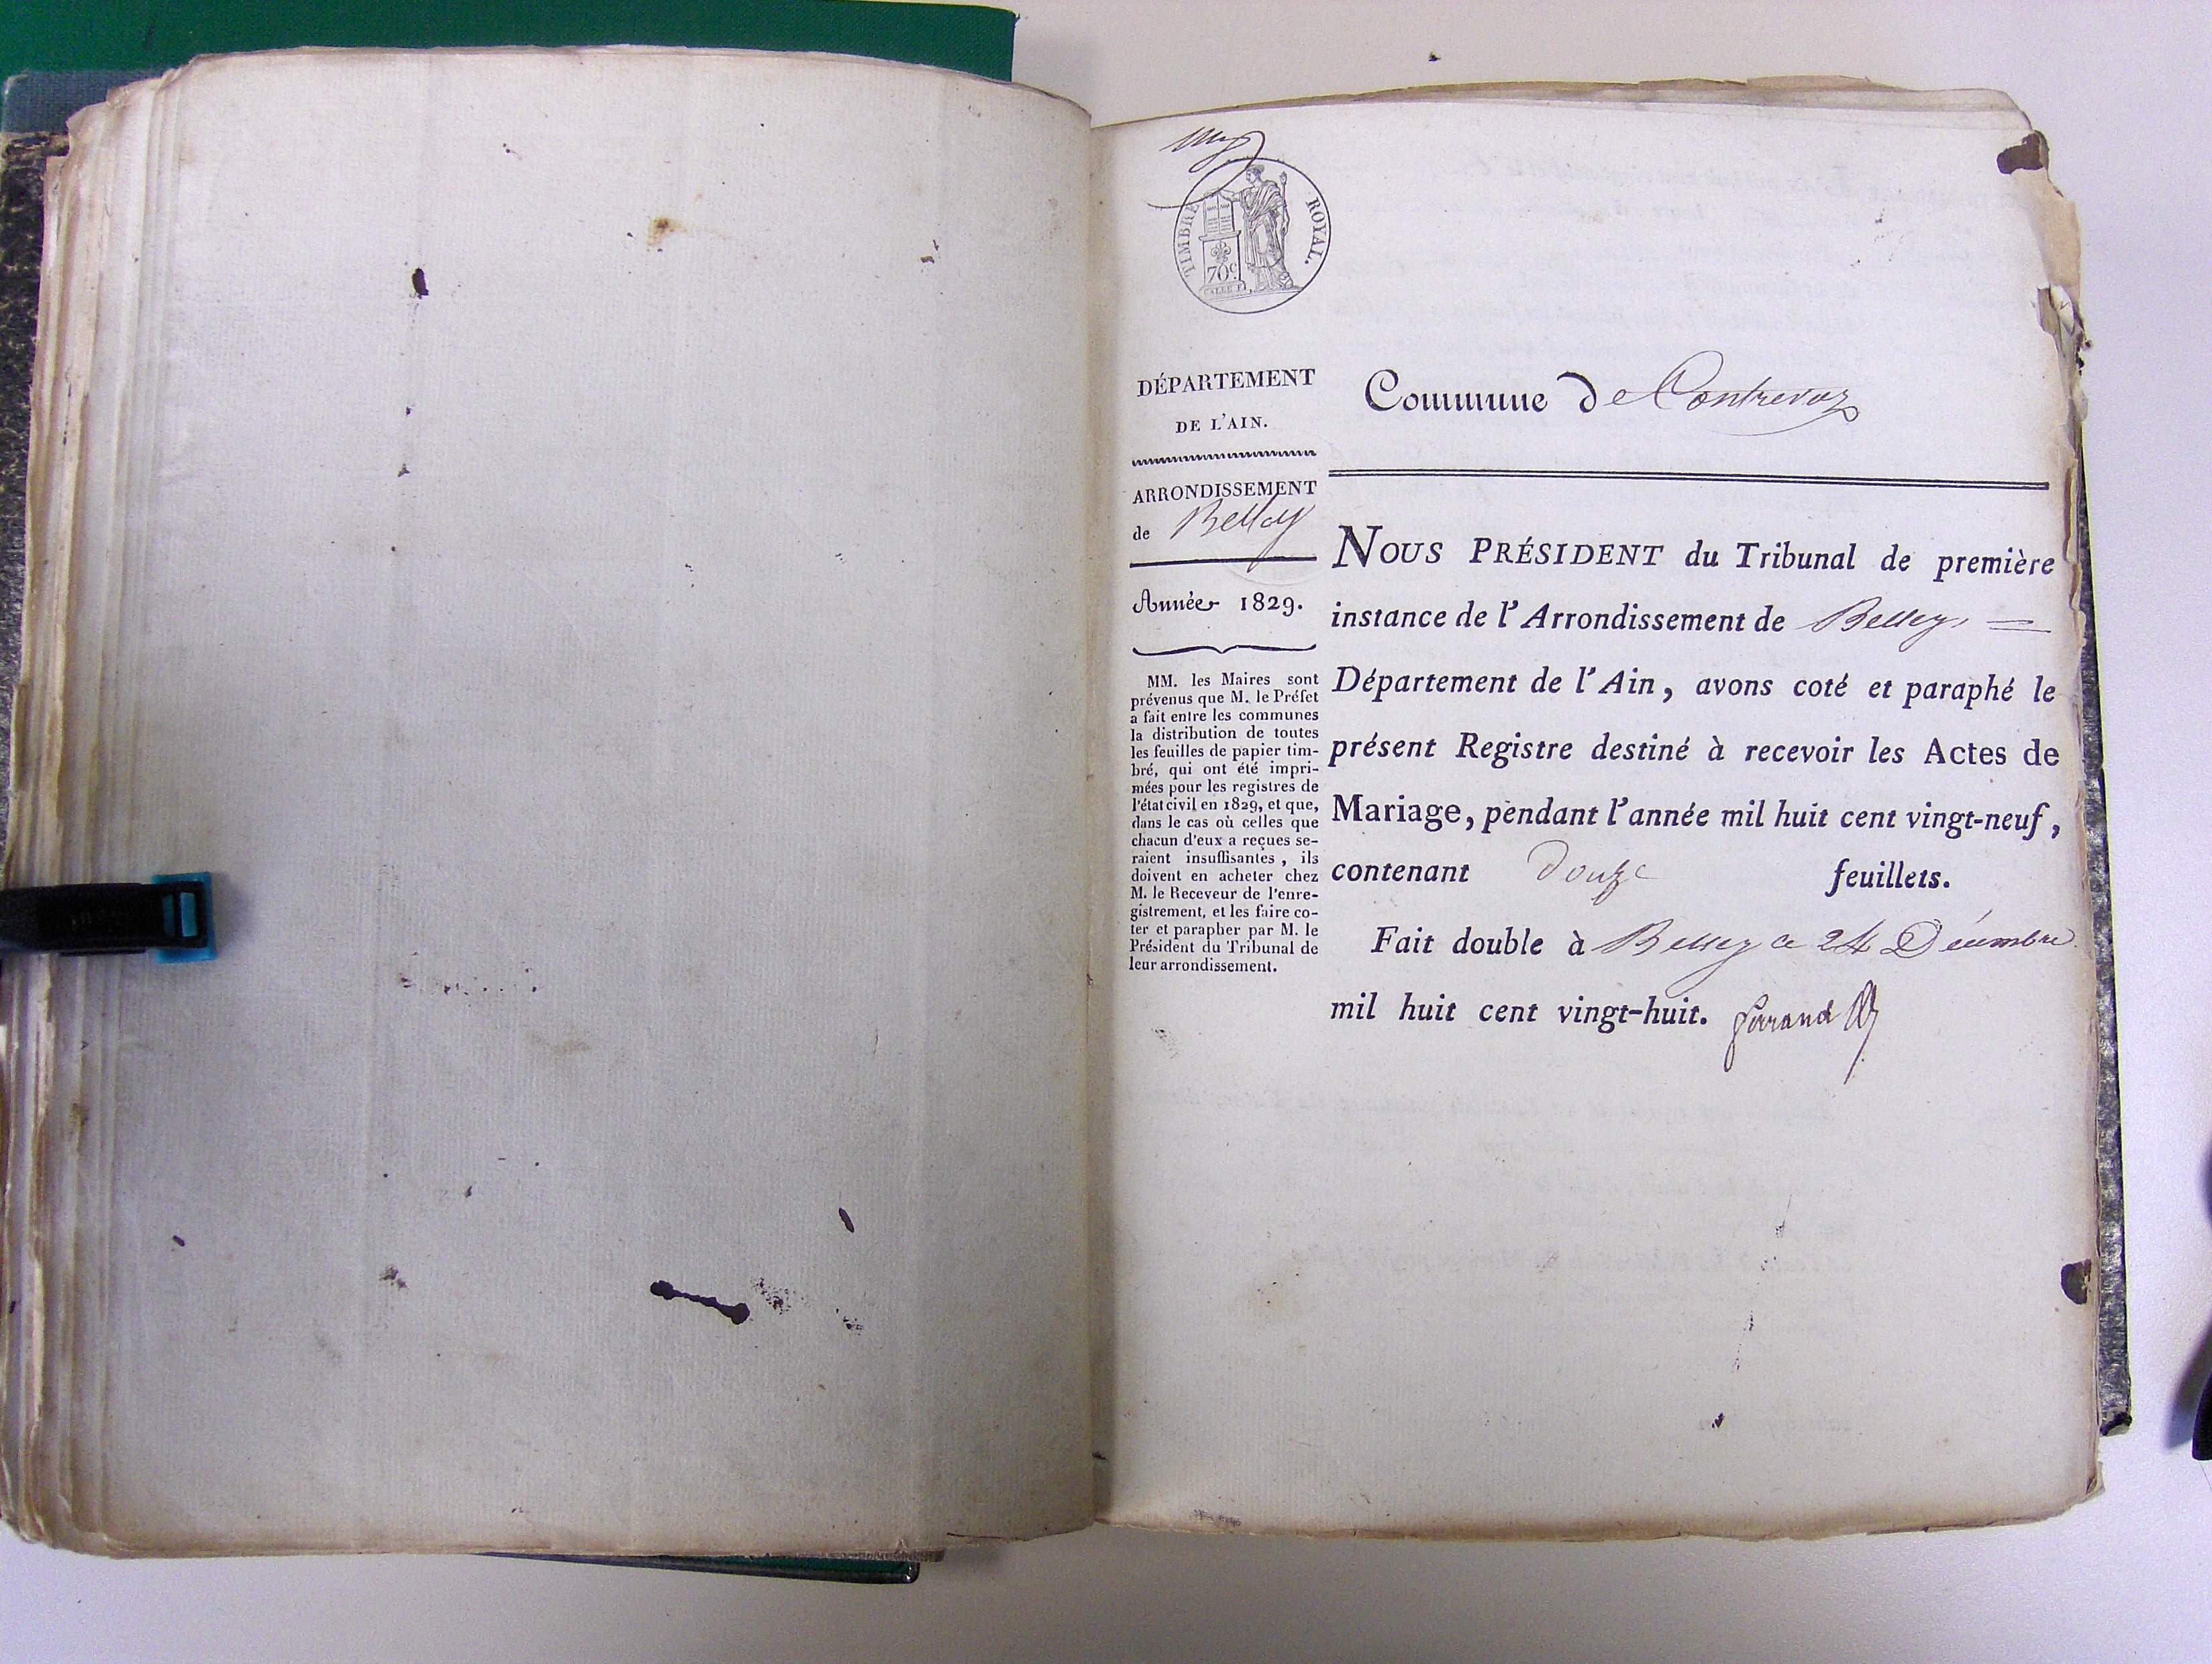 TIMBRE ROYAL.
70c
DÉPARTEMENT
DE L'AIN.
ARRONDISSEMENT
de Belley
Année 1829.
MM. les Maires sont
prévenus que M. le Préfet
a fait entre les communes
la distribution de toutes
les feuilles de papier tim-
bré, qui ont été impri-
mées pour les registres de
l'état civil en 1829, et que,
dans le cas où celles que
chacun d'eux a reçues se-
raient insuffisantes, ils
doivent en acheter chez
M. le Receveur de l'enre-
gistrement, et les faire co-
ter et parapher par M. le
Président du Tribunal de
leur arrondissement.
Commune de Contrevoz
NOUS PRÉSIDENT du Tribunal de première
instance de l'Arrondissement de Belley
Département de l'Ain, avons coté et paraphé le
présent Registre destiné à recevoir les Actes de
Mariage, pendant l'année mil huit cent vingt-neuf,
contenant douze feuillets.
Fait double à Belley ce 24 Décembre
mil huit cent vingt-huit.